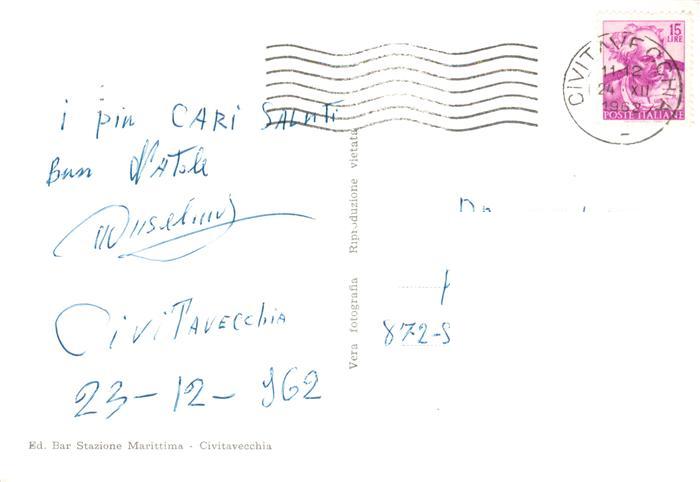 i più CARi SALUTi
Buon NATALE
CiViTAVECCHiA
23-12-962
Ed. Bar Stazione Marittima - Civitavecchia
Vera fotografia Riproduzione vietata
15
LIRE
POSTE ITALIANE
CIVITAVECCHIA
11-12
24 XII
1962
872-S